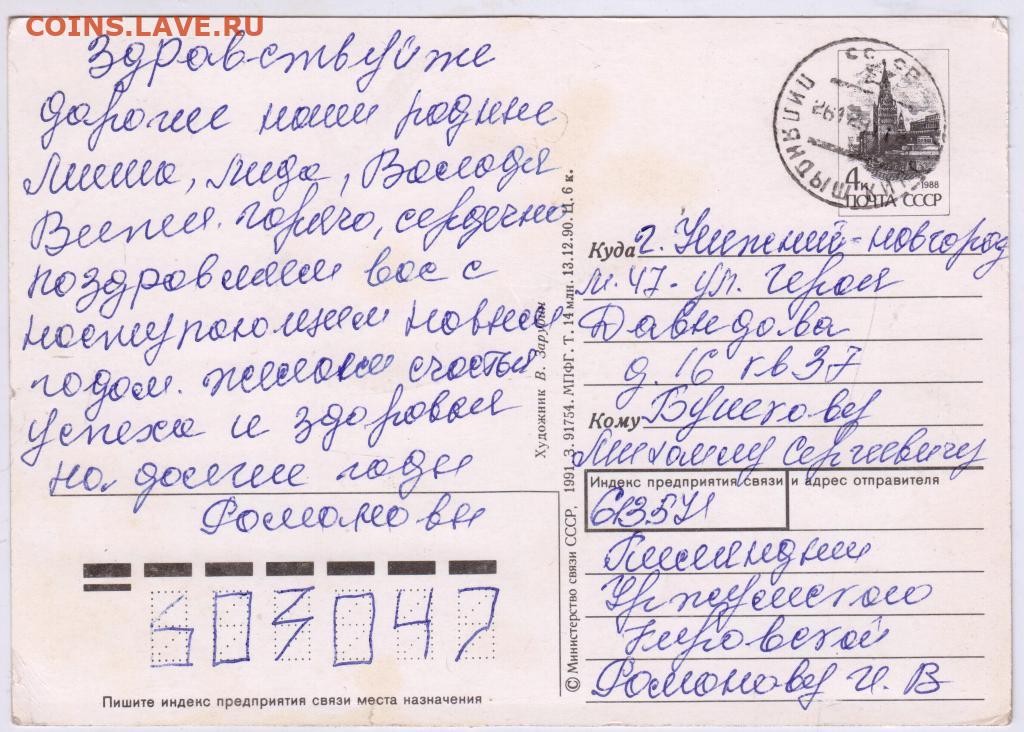 COINS.LAVE.RU
Здравствуйте
дорогие наши родные
Миша, Лида, Володя
Вити. горячо, сердечно
поздравляем вас с
наступающим новым
годом. желаем счастья
успеха и здоровья
на долгие годы
Романовы
603047
Пишите индекс предприятия связи места назначения
© Министерство связи СССР, 1991. З. 91754. МПФГ. Т. 14 млн. 13.12.90. Ц. 6 к.
Художник В. Зарубин
СССР
4к
1988
ПОЧТА СССР
Куда г. Нижний-новгород
м. 47- ул. Героя
Давыдова
д. 16 кв 37
Кому Бушкову
Михаилу Сергеевичу
Индекс предприятия связи и адрес отправителя
Уржумского
Кировской
Романову И. В